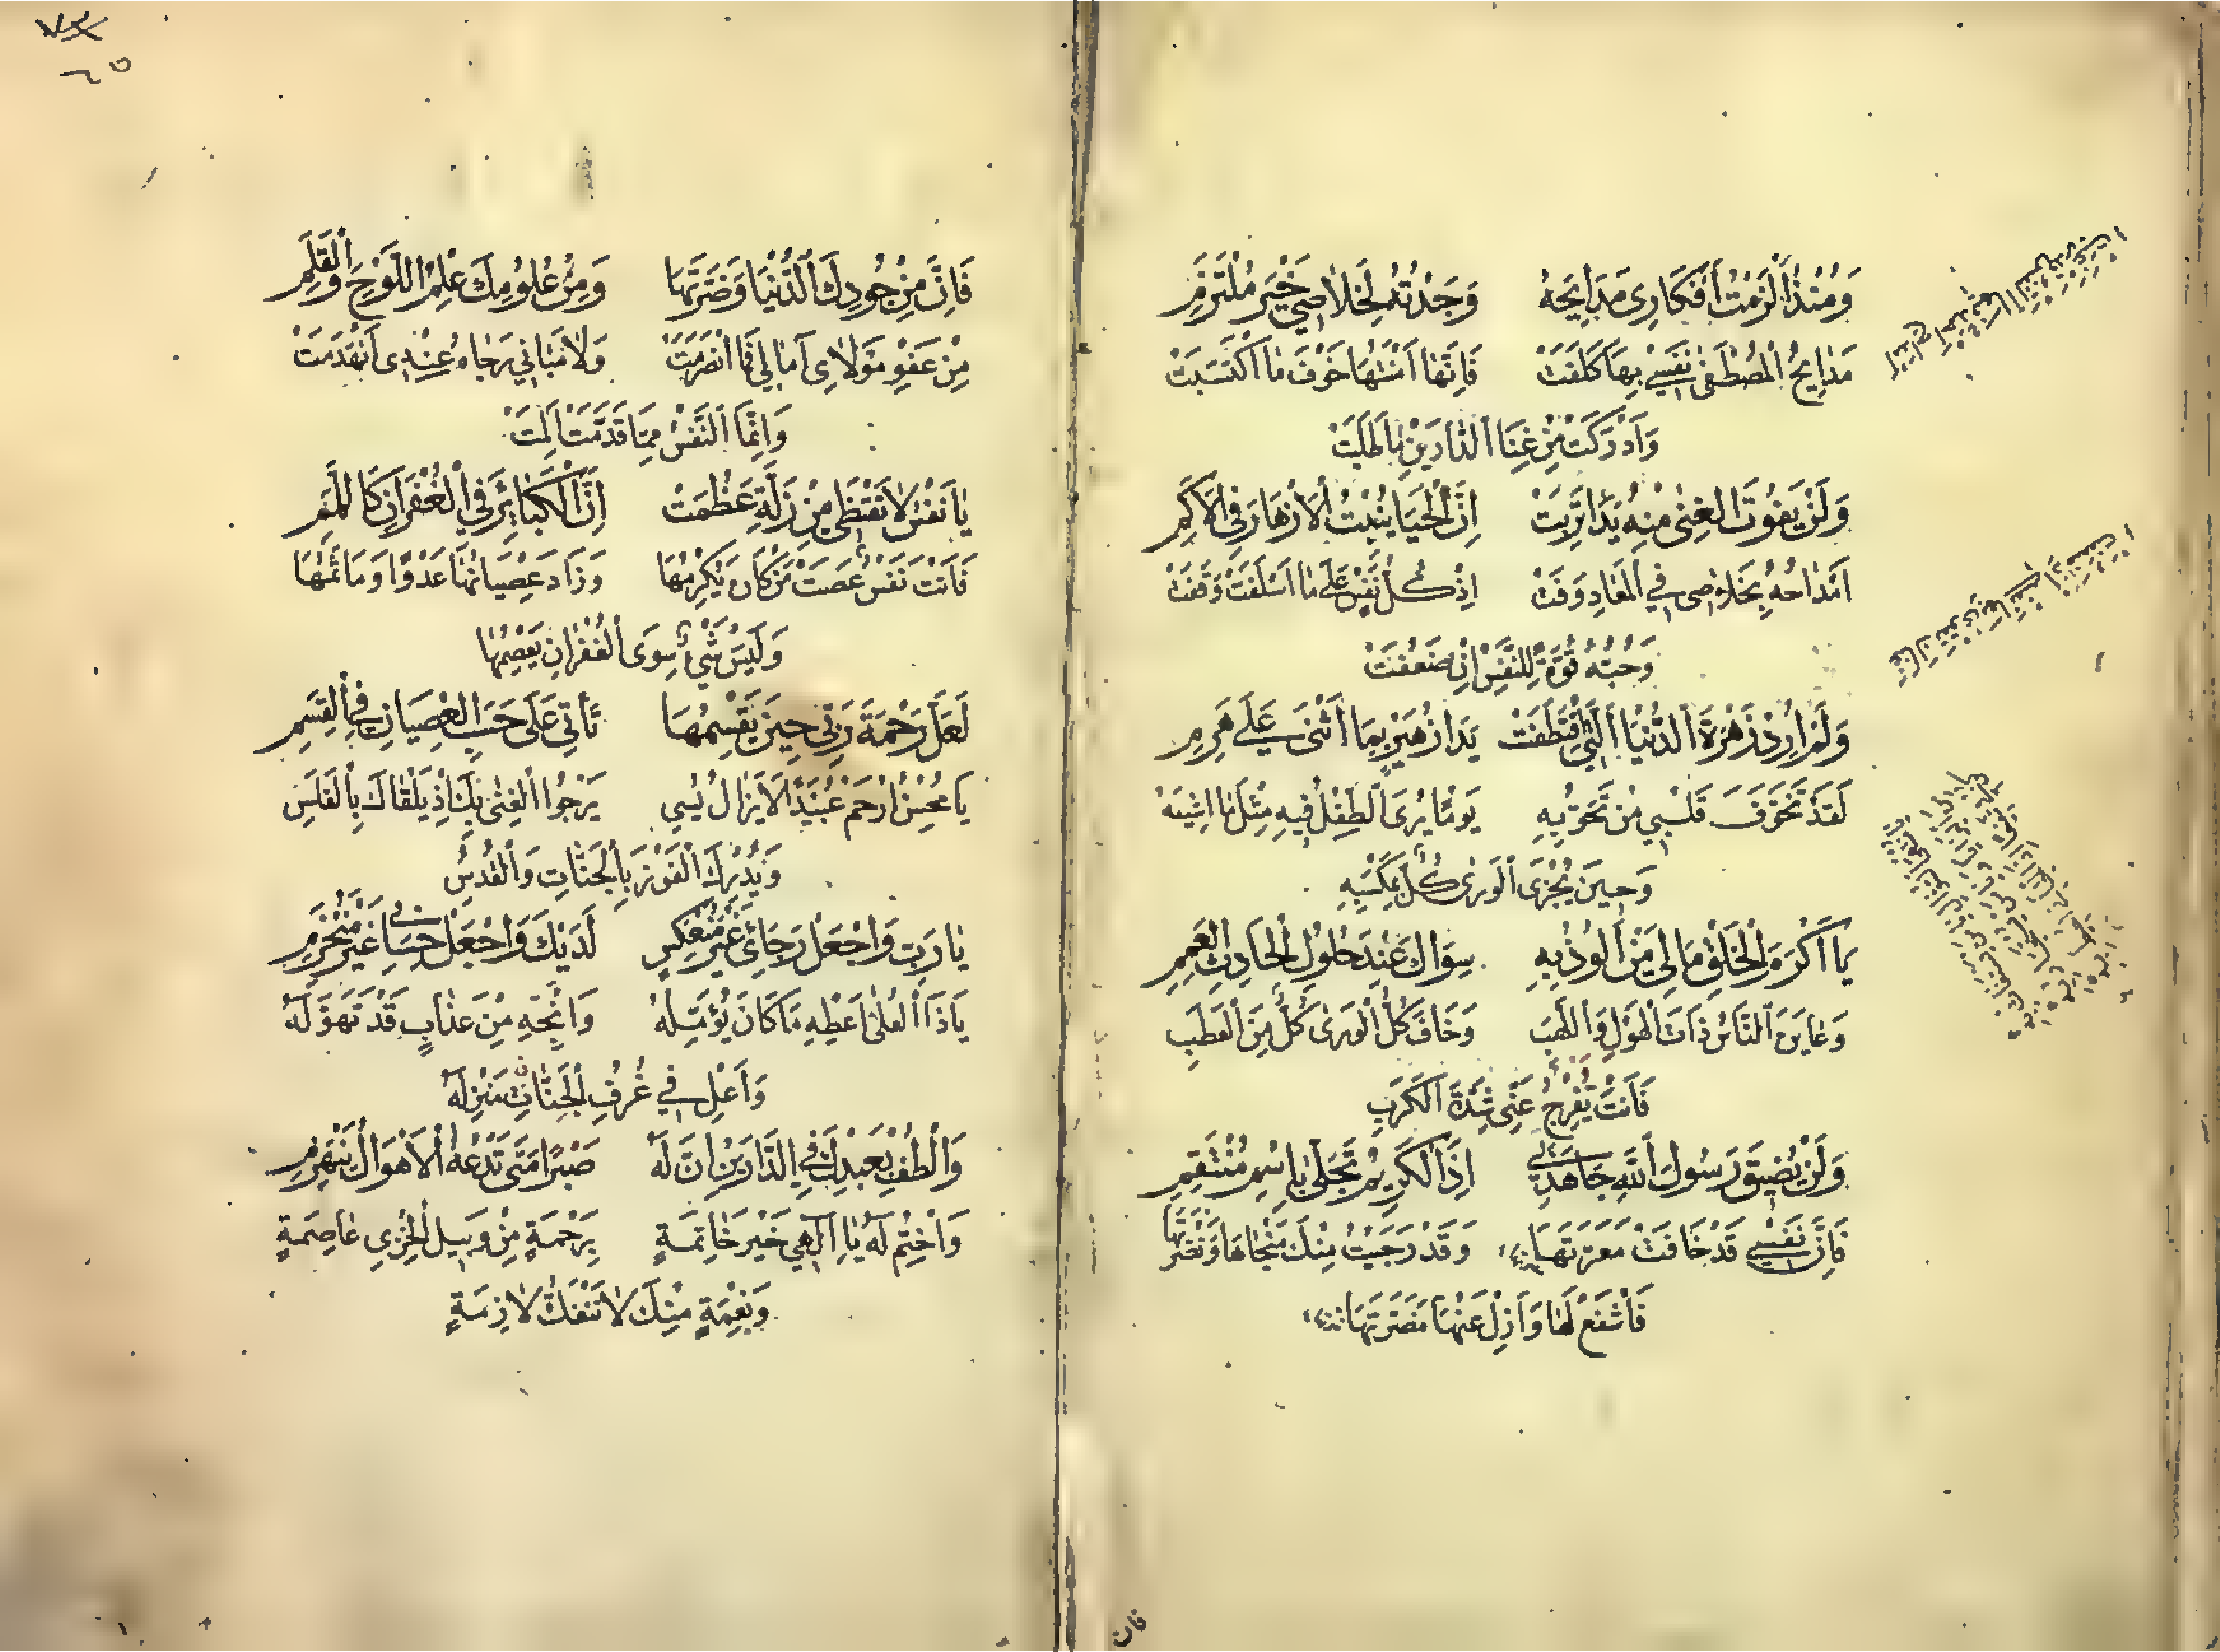 وَمُنْذُ أَلْزَمْتُ أَفْكَارِى مَدَايِحَهُ وَجَدْتُهُ لِخَلَاصِي خَيْرَ مُلْتَزِمِ
مَدَايِحُ الْمُصْطَفَى نَفْسِي بِهَا كَلَفَتْ فَإِنَّهَا أَنْسَتْهَا خَوْفَ مَا اكْتَسَبَتْ
وَأَدْرَكَتْ مِنْ غِنَا الدَّارَيْنِ مَا طَلَبَتْ
وَلَنْ يَفُوتَ الْغِنَى مِنْهُ يَدًا تَرِبَتْ إِنَّ الْحَيَا يُنْبِتُ الْأَزْهَارَ فِى الْأَكَمِ
أَمْدَاحُهُ بِخَلَاصِى فِي الْمَعَادِ وَفَتْ إِذْ كُلُّ نَفْسٍ عَلَى مَا أَسْلَفَتْ وَقَفَتْ
وَحُبُّهُ قُوَّةٌ لِلنَّفْسِ إِنْ ضَعُفَتْ
وَلَمْ أُرِدْ زَهْرَةَ الدُّنْيَا الَّتِي اقْتَطَفَتْ يَدَا زُهَيْرٍ بِمَا أَثْنَى عَلَى هَرِمِ
لَقَدْ تَخَوَّفَ قَلْبِي مِنْ تَحَوُّبِهِ يَوْمًا يُرَى الطِّفْلُ فِيهِ مِثْلَ أَشْيَبِهِ
وَحِينَ يُجْزَى الْوَرَى كُلٌّ بِمَكْسَبِهِ
يَا أَكْرَمَ الْخَلْقِ مَا لِي مَنْ أَلُوذُ بِهِ سِوَاكَ عِنْدَ حُلُولِ الْحَادِثِ الْعَمِمِ
وَعَايَنَ النَّاسُ ذَاتَ الْهَوْلِ وَاللَّهَبِ وَخَافَ كُلُّ الْوَرَى كُلٌّ مِنَ الْعَطَبِ
فَأَنْتَ تُفْرِجُ عَنِّى شِدَّةَ الْكُرَبِ
وَلَنْ يَضِيقَ رَسُولَ اللَّهِ جَاهُكَ بِي إِذَا الْكَرِيمُ تَجَلَّى بِاسْمِ مُنْتَقِمِ
فَإِنَّ نَفْسِي قَدْ خَافَتْ مَعَرَّتَهَا وَقَدْ رَجَيْتُ مِنْكَ مَنْجَاهَا وَنُصْرَتَهَا
فَاشْفَعْ لَهَا وَأَزِلْ عَنْهَا مَضَرَّتَهَا
فان
٦٥
فَإِنَّ مِنْ جُودِكَ الدُّنْيَا وَضَرَّتَهَا وَمِنْ عُلُومِكَ عِلْمُ اللَّوْحِ وَالْقَلَمِ
مِنْ عَفْوِ مَوْلَاىَ آمَالِي فَمَا انْصَرَمَتْ وَلَا مَبَانِي رَجَاهُ عِنْدِى انْهَدَمَتْ
وَإِنَّمَا النَّفْسُ مِمَّا قَدَّمَتْ أَلِمَتْ
يَا نَفْسُ لَا تَقْنَطِى مِنْ زَلَّةٍ عَظُمَتْ إِنَّ الْكَبَائِرَ فِي الْغُفْرَانِ كَاللَّمَمِ
فَأَنْتِ نَفْسٌ عَصَتْ مَنْ كَانَ يُكْرِمُهَا وَزَادَ عِصْيَانُهَا عَدْوًا وَمَأْثَمُهَا
وَلَيْسَ شَيْءٌ سِوَى الْغُفْرَانِ يَعْصِمُهَا
لَعَلَّ رَحْمَةَ رَبِّى حِينَ يَقْسِمُهَا تَأْتِي عَلَى حَسَبِ الْعِصْيَانِ فِي الْقِسَمِ
يَا مُحْسِنُ ارْحَمْ عُبَيْدًا لَا يَزَالُ يُسِي يَرْجُوا الْغِنَى بِكَ إِذْ يَلْقَاكَ بِالْفَلَسِ
وَيُدْرِكَ الْفَوْزَ بِالْجَنَّاتِ وَالْقُدُسِ
يَا رَبِّ وَاجْعَلْ رَجَائِى غَيْرَ مُنْعَكِسٍ لَدَيْكَ وَاجْعَلْ حِسَابِي غَيْرَ مُنْخَرِمِ
يَا ذَا الْعُلَى أَعْطِهِ مَا كَانَ يُؤَمِّلُهُ وَأَنْجِهِ مِنْ عَذَابٍ قَدْ تَهَوَّلَهُ
وَأَعْلِ فِي غُرَفِ الْجَنَّاتِ مَنْزِلَهُ
وَالْطُفْ بِعَبْدِكَ فِي الدَّارَيْنِ إِنَّ لَهُ صَبْرًا مَتَى تَدْعُهُ الْأَهْوَالُ يَنْهَزِمِ
وَاخْتِمْ لَهُ يَا إِلَهِي خَيْرَ خَاتِمَةٍ بِرَحْمَةٍ مِنْ وَبِيلِ الْخِزْيِ عَاصِمَةٍ
وَنِعْمَةٍ مِنْكَ لَا تَنْفَكُّ لَازِمَةٍ